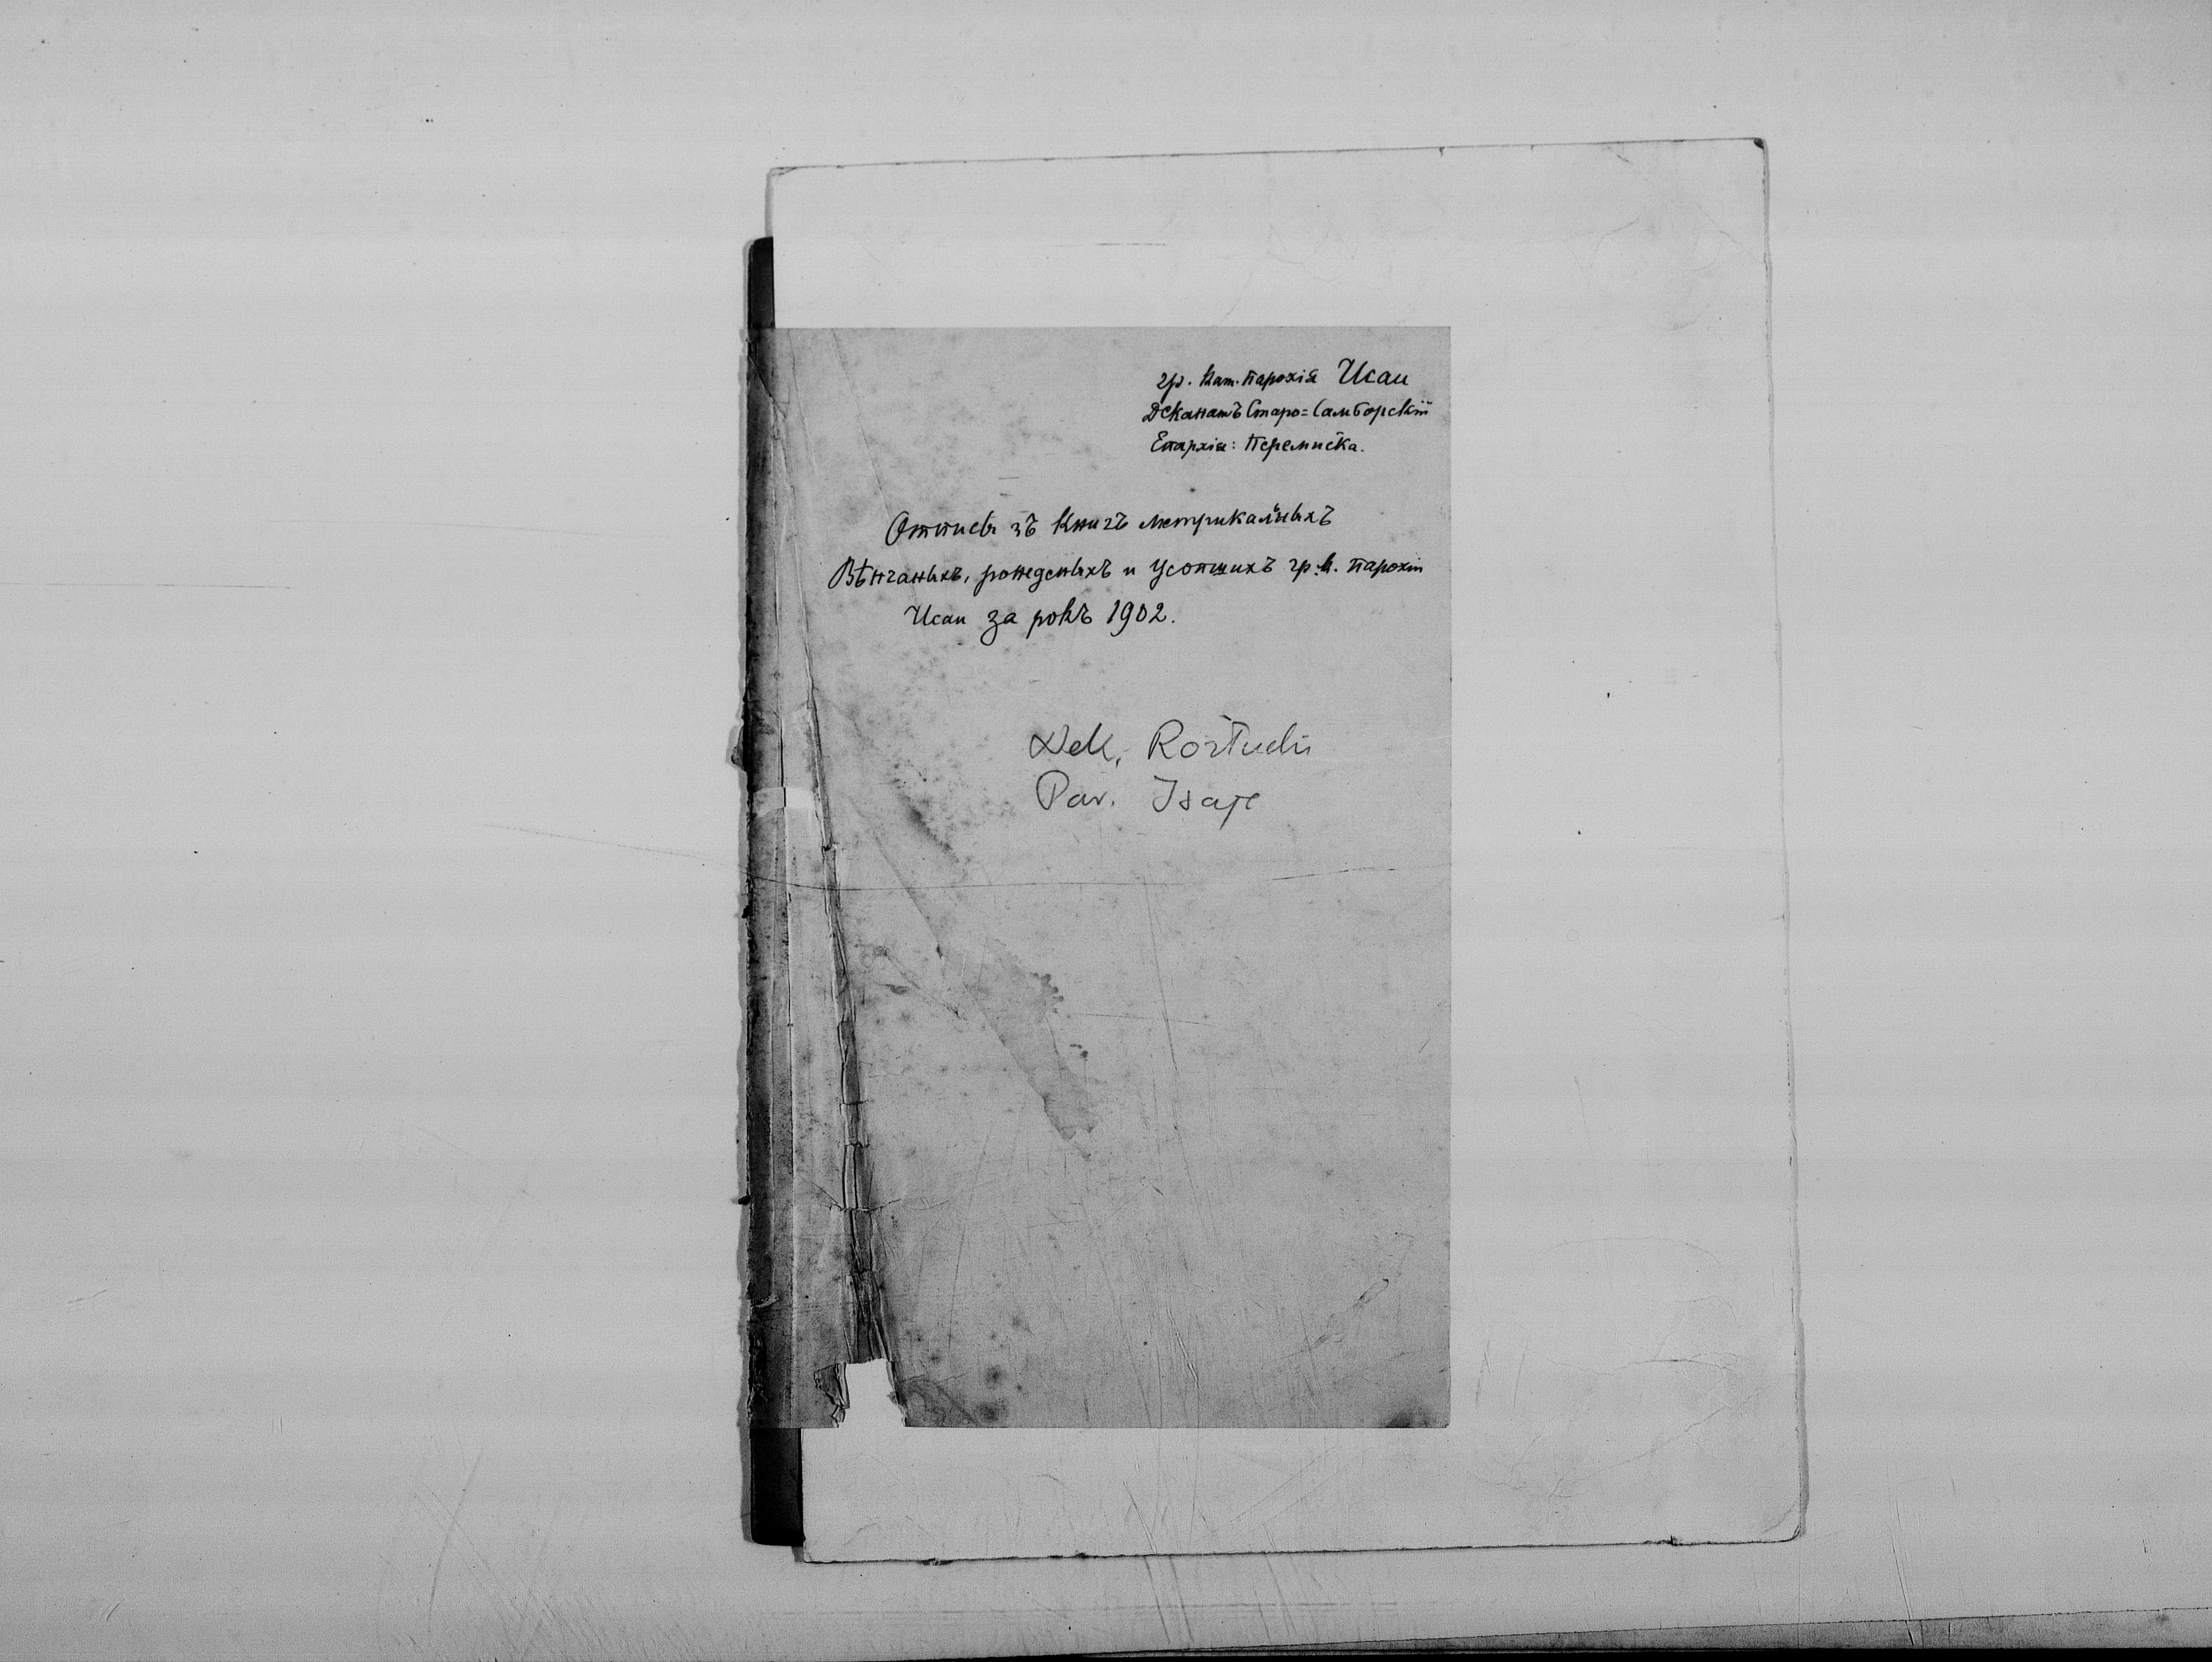 гр. кат. парохія Исаи
Деканатъ Старо=Самборскій
Епархія: Перемиска.
Отписы зъ книгъ метрикальныхъ
Вѣнчаныхъ, рожденыхъ и усопшихъ гр. к. парохіи
Исаи за рокъ 1902.
Dek,
Par. Isaje